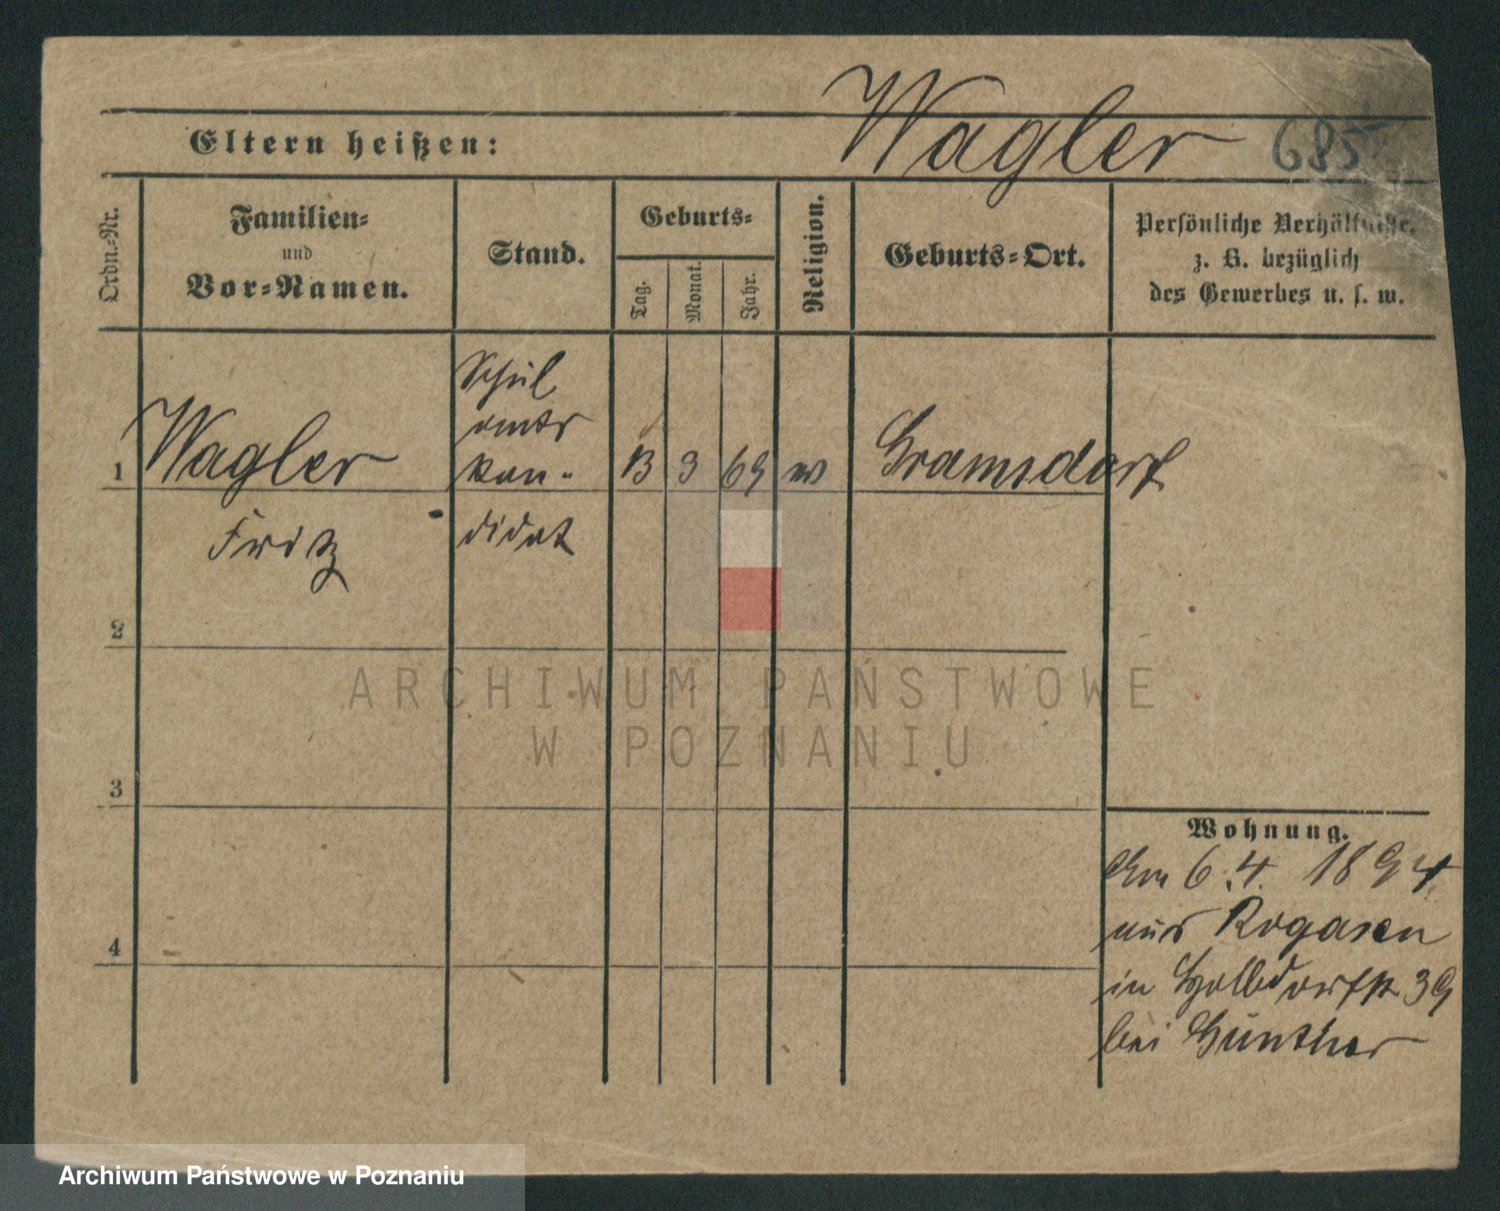 Wagler 685
Eltern heißen:
Ordn.=Nr.
Familien=
und
Vor=Namen.
Stand.
Geburts=
Tag.
Monat.
Jahr.
Religion.
Geburts=Ort.
Persönliche Verhältnisse,
z. B. bezüglich
des Gewerbes u. s. w.
1
Wagler
Fritz
Schul
amts
kan-
didat
13
3
69
Gramsdorf
2
3
4
Wohnung.
6.4. 1894
aus Rogasen
in 39
bei Günther
ARCHIWUM PAŃSTWOWE
W POZNANIU
Archiwum Państwowe w Poznaniu